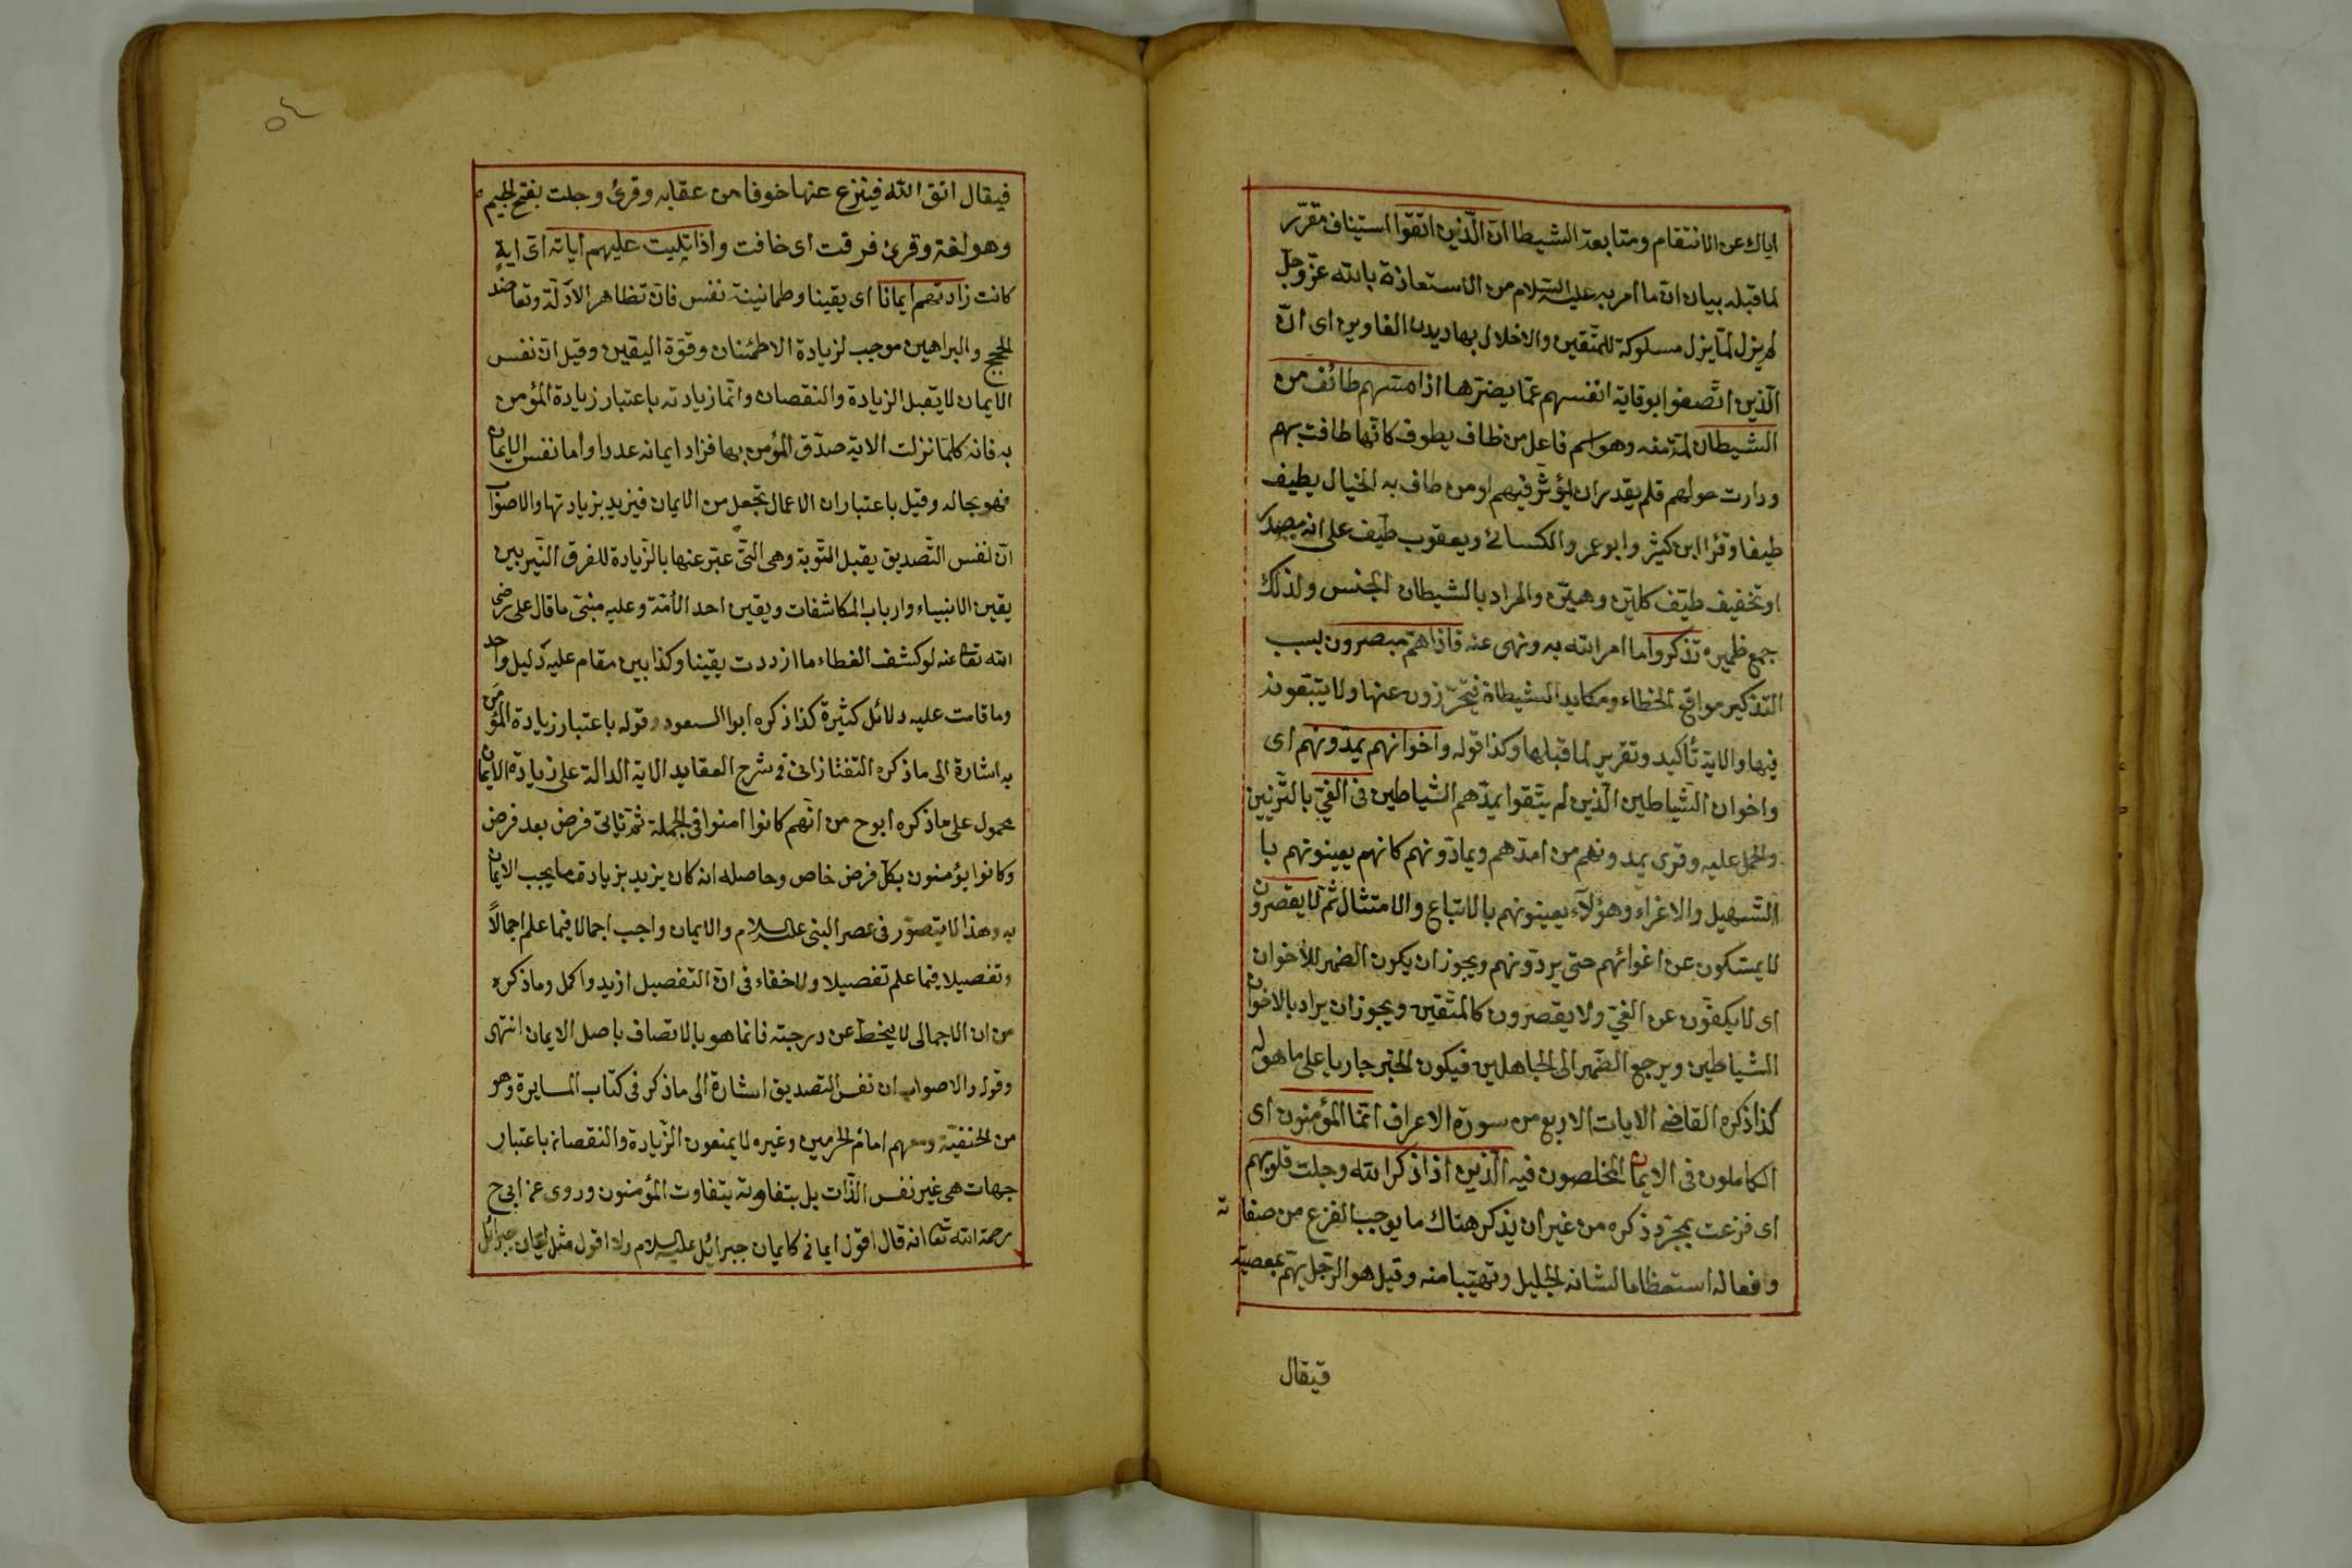 اياك عن الانتقام ومتابعة الشيطان ان الذين اتقوا استيناف مقرر
لما قبله ببيان ان ما امر به عليه السلام من الاستعاذة بالله عز وجل
يزل مسلوكة للمتقين والاخلال بها ديدن الغاوين اى ان
الذين اتصفوا بوقاية انفسهم عما يضرها اذا مسهم طائف من
الشيطان لمة منه وهو اسم فاعل من طاف يطوف كانها طافت بهم
ودارت حولهم فلم يقدر ان يؤثر فيهم او من طاف به الخيال يطيف
طيفا وقرا ابن كثير وابو عمرو والكسائى ويعقوب طيف على انه مصدر
او تخفيف طيف كلين وهين والمراد بالشيطان الجنس ولذلك
جمع ضميره تذكروا ما امر الله به ونهى عنه فاذا هم مبصرون بسبب
التذكير مواقع الخطاء ومكايد الشيطان فيتحرزون عنها ولا يتبعونه
فيها والاية تأكيد وتقرير لما قبلها وكذا قوله واخوانهم يمدونهم اى
واخوان الشياطين الذين لم يتقوا يمدهم الشياطين فى الغى بالتزيين
والحمل عليه وقرى يمدونهم من امدهم ويمادونهم كانهم يعينونهم با
التسهيل والاغراء وهؤلاء يعينونهم بالاتباع والامتثال ثم لا يقصرون
لا يمسكون عن اغوائهم حتى يردونهم ويجوز ان يكون الضمير للاخوان
اى لا يكفون عن الغى ولا يقصرون كالمتقين ويجوز ان يراد بالاخوان
الشياطين ويرجع الضمير الى الجاهلين فيكون الخبر جاريا على ما هو له
كذا ذكره القاضى الايات الاربع من سورة الاعراف انما المؤمنون اى
الكاملون فى الايمان المخلصون فيه الذين اذا ذكر الله وجلت قلوبهم
اى فزعت بمجرد ذكره من غير ان يذكر هناك ما يوجب الفزع من صفاته
وافعاله استعظاما لشانه الجليل وتهيبا منه وقيل هو الرجل يهم بمعصية
فيقال
فيقال اتق الله فينزع عنها خوفا من عقابه وقرئ وجلت بفتح الجيم
وهو لغة وقرئ فرقت اى خافت واذا تليت عليهم اياته اى اية
كانت زادتهم ايمانا اى يقينا وطمانينة نفس فان تظاهر الادلة وتعاضد
الحجج والبراهين موجب لزيادة الاطمئنان وقوة اليقين وقيل ان نفس
الايمان لا يقبل الزيادة والنقصان وانما زيادته باعتبار زيادة المؤمن
به فانه كلما نزلت الاية صدق المؤمن بها فزاد ايمانه عددا واما نفس الايمان
فهو بحاله وقيل باعتبار ان الاعمال تجعل من الايمان فيزيد بزيادتها والاصواب
ان نفس التصديق يقبل القوية وهى التى عبر عنها بالزيادة للفرق النير بين
يقين الانبياء وارباب المكاشفات ويقين احد الأمة وعليه مبنى ما قال على رضى
الله تعا عنه لو كشف الغطاء ما ازددت يقينا وكذا بين مقام عليه دليل واحد
وما قامت عليه دلائل كثيرة كذا ذكره ابوا السعود وقوله باعتبار زيادة المؤمن
به اشارة الى ما ذكره التفتازانى فى شرح العقايد الاية الدالة على زيادة الايمان
محمول على ما ذكره ابو ح من انهم كانوا امنوا فى الجملة ثم ثانى فرض بعد فرض
وكانوا يؤمنون بكل فرض خاص وحاصله انه كان يزيد بزيادة ما يجب الايمان
به وهذا لا يتصور فى عصر النبى عليه السلام والايمان واجب اجمالا فيما علم اجمالاً
وتفصيلا فيما علم تفصيلا ولا خفاء فى ان التفصيل ازيد واكمل وما ذكره
من ان الاجمالى لا ينحط عن درجته فانما هو بالاتصاف باصل الايمان انتهى
وقوله والاصواب ان نفس التصديق اشارة الى ما ذكر فى كتاب المسايرة وهو
من الحنفية ومعهم امام الحرمين وغيره لا يمنعون الزيادة والنقصان باعتبار
جهات هى غير نفس الذات بل بتفاوته يتفاوت المؤمنون وروى عن ابى ح
رحمة الله تعا انه قال اقول ايمانى كايمان جبرائيل عليه السلام ولا اقول مثل ايمان جبرائل